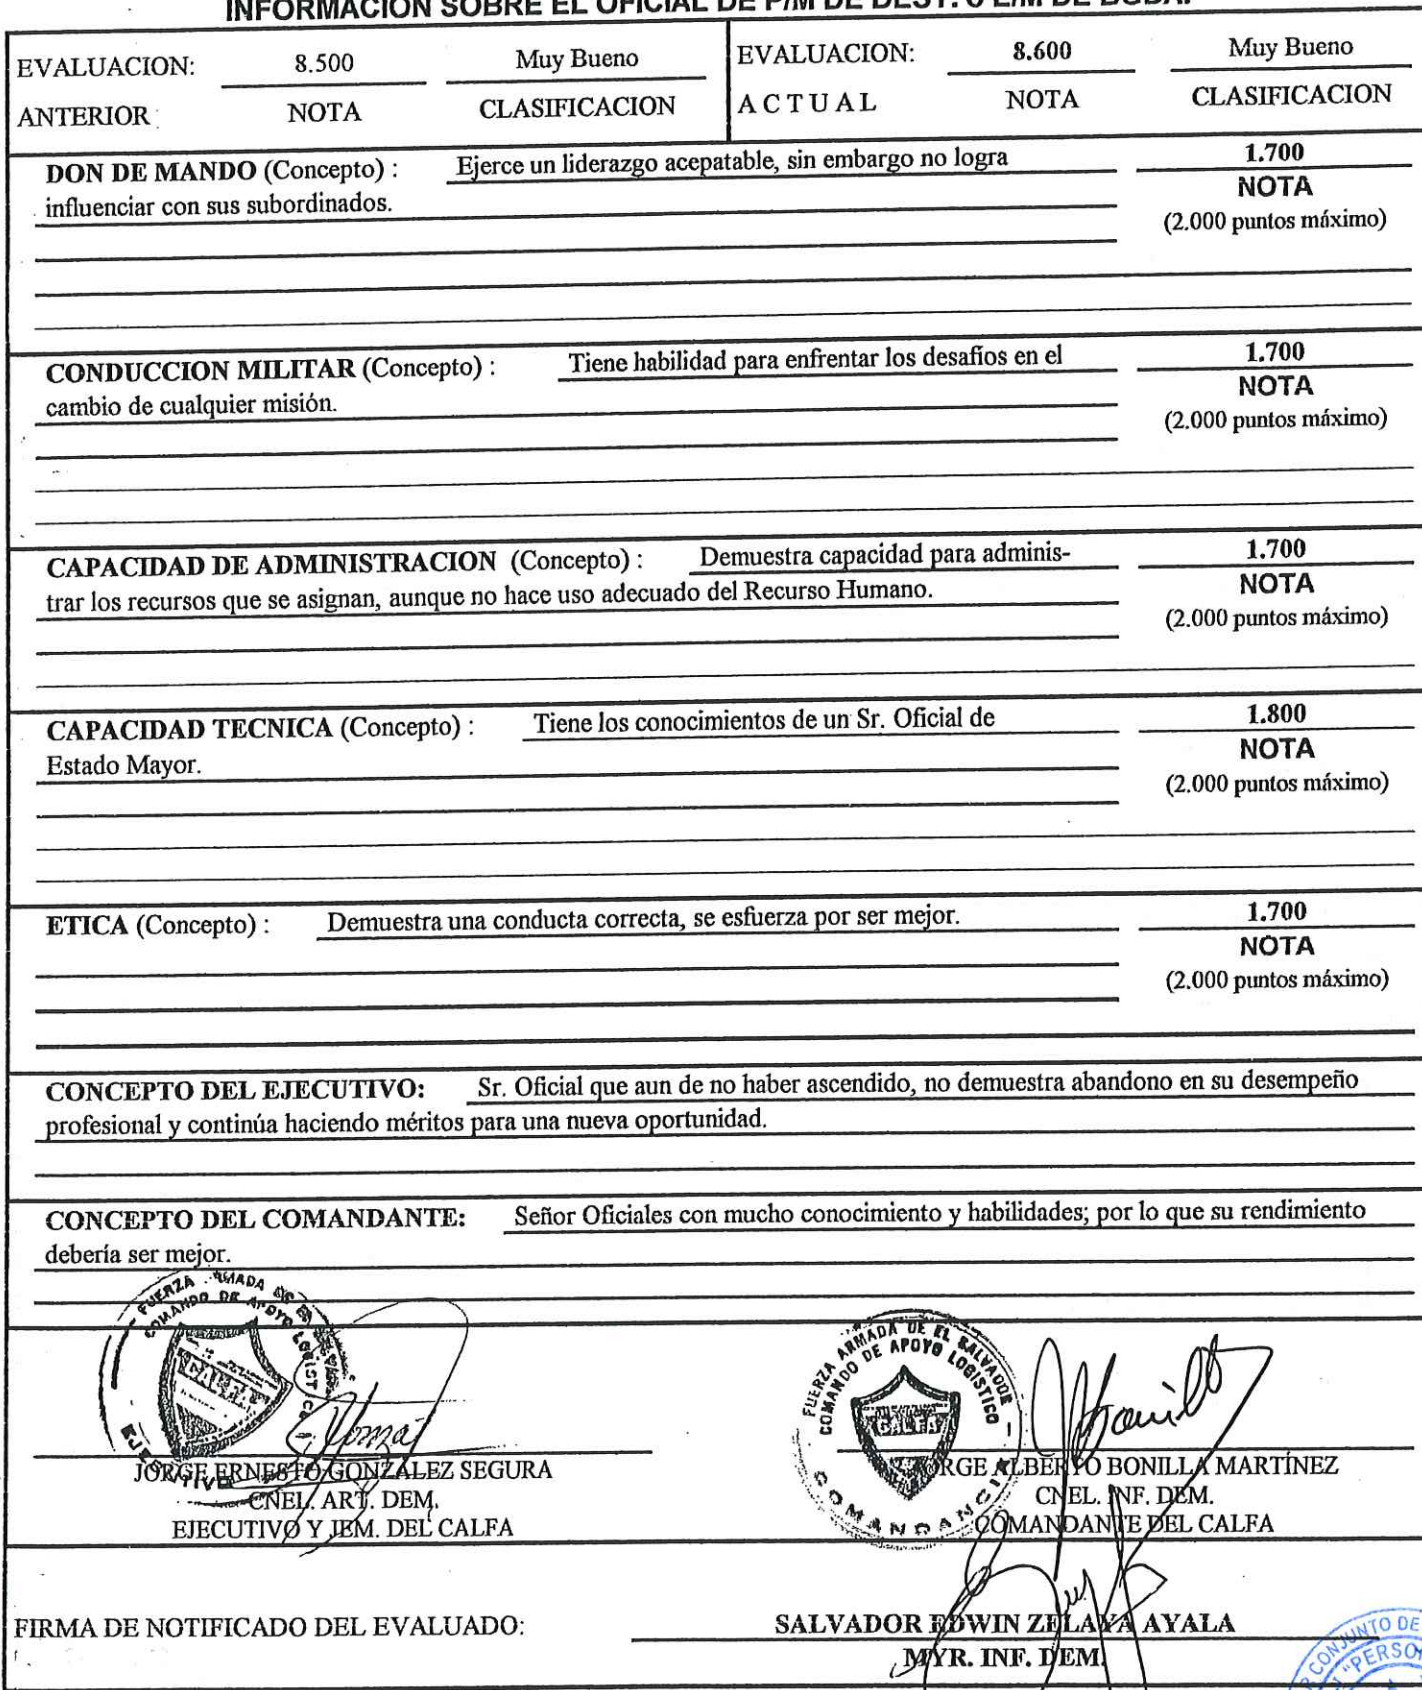 INFORMACION SOBRE EL OFICIAL DE P/M DE DEST. O E/M DE BGDA.
EVALUACION: 8.500 Muy Bueno
ANTERIOR : NOTA CLASIFICACION
EVALUACION: 8.600 Muy Bueno
ACTUAL NOTA CLASIFICACION
DON DE MANDO (Concepto) : Ejerce un liderazgo acepatable, sin embargo no logra
influenciar con sus subordinados.
1.700
NOTA
(2.000 puntos máximo)
CONDUCCION MILITAR (Concepto) : Tiene habilidad para enfrentar los desafíos en el
cambio de cualquier misión.
1.700
NOTA
(2.000 puntos máximo)
CAPACIDAD DE ADMINISTRACION (Concepto) : Demuestra capacidad para adminis-
trar los recursos que se asignan, aunque no hace uso adecuado del Recurso Humano.
1.700
NOTA
(2.000 puntos máximo)
CAPACIDAD TECNICA (Concepto) : Tiene los conocimientos de un Sr. Oficial de
Estado Mayor.
1.800
NOTA
(2.000 puntos máximo)
ETICA (Concepto) : Demuestra una conducta correcta, se esfuerza por ser mejor.
1.700
NOTA
(2.000 puntos máximo)
CONCEPTO DEL EJECUTIVO: Sr. Oficial que aun de no haber ascendido, no demuestra abandono en su desempeño
profesional y continúa haciendo méritos para una nueva oportunidad.
CONCEPTO DEL COMANDANTE: Señor Oficiales con mucho conocimiento y habilidades; por lo que su rendimiento
debería ser mejor.
FUERZA ARMADA DE
COMANDO DE APOYO LOGISTICO
CALFA
EJECUTIVO
JORGE ERNESTO GONZÁLEZ SEGURA
CNEL. ART. DEM.
EJECUTIVO Y JEM. DEL CALFA
FUERZA ARMADA DE EL SALVADOR
COMANDO DE APOYO LOGISTICO
CALFA
COMANDANCIA
JORGE ALBERTO BONILLA MARTÍNEZ
CNEL. INF. DEM.
COMANDANTE DEL CALFA
FIRMA DE NOTIFICADO DEL EVALUADO:
SALVADOR EDWIN ZELAYA AYALA
MYR. INF. DEM.
CONJUNTO DE